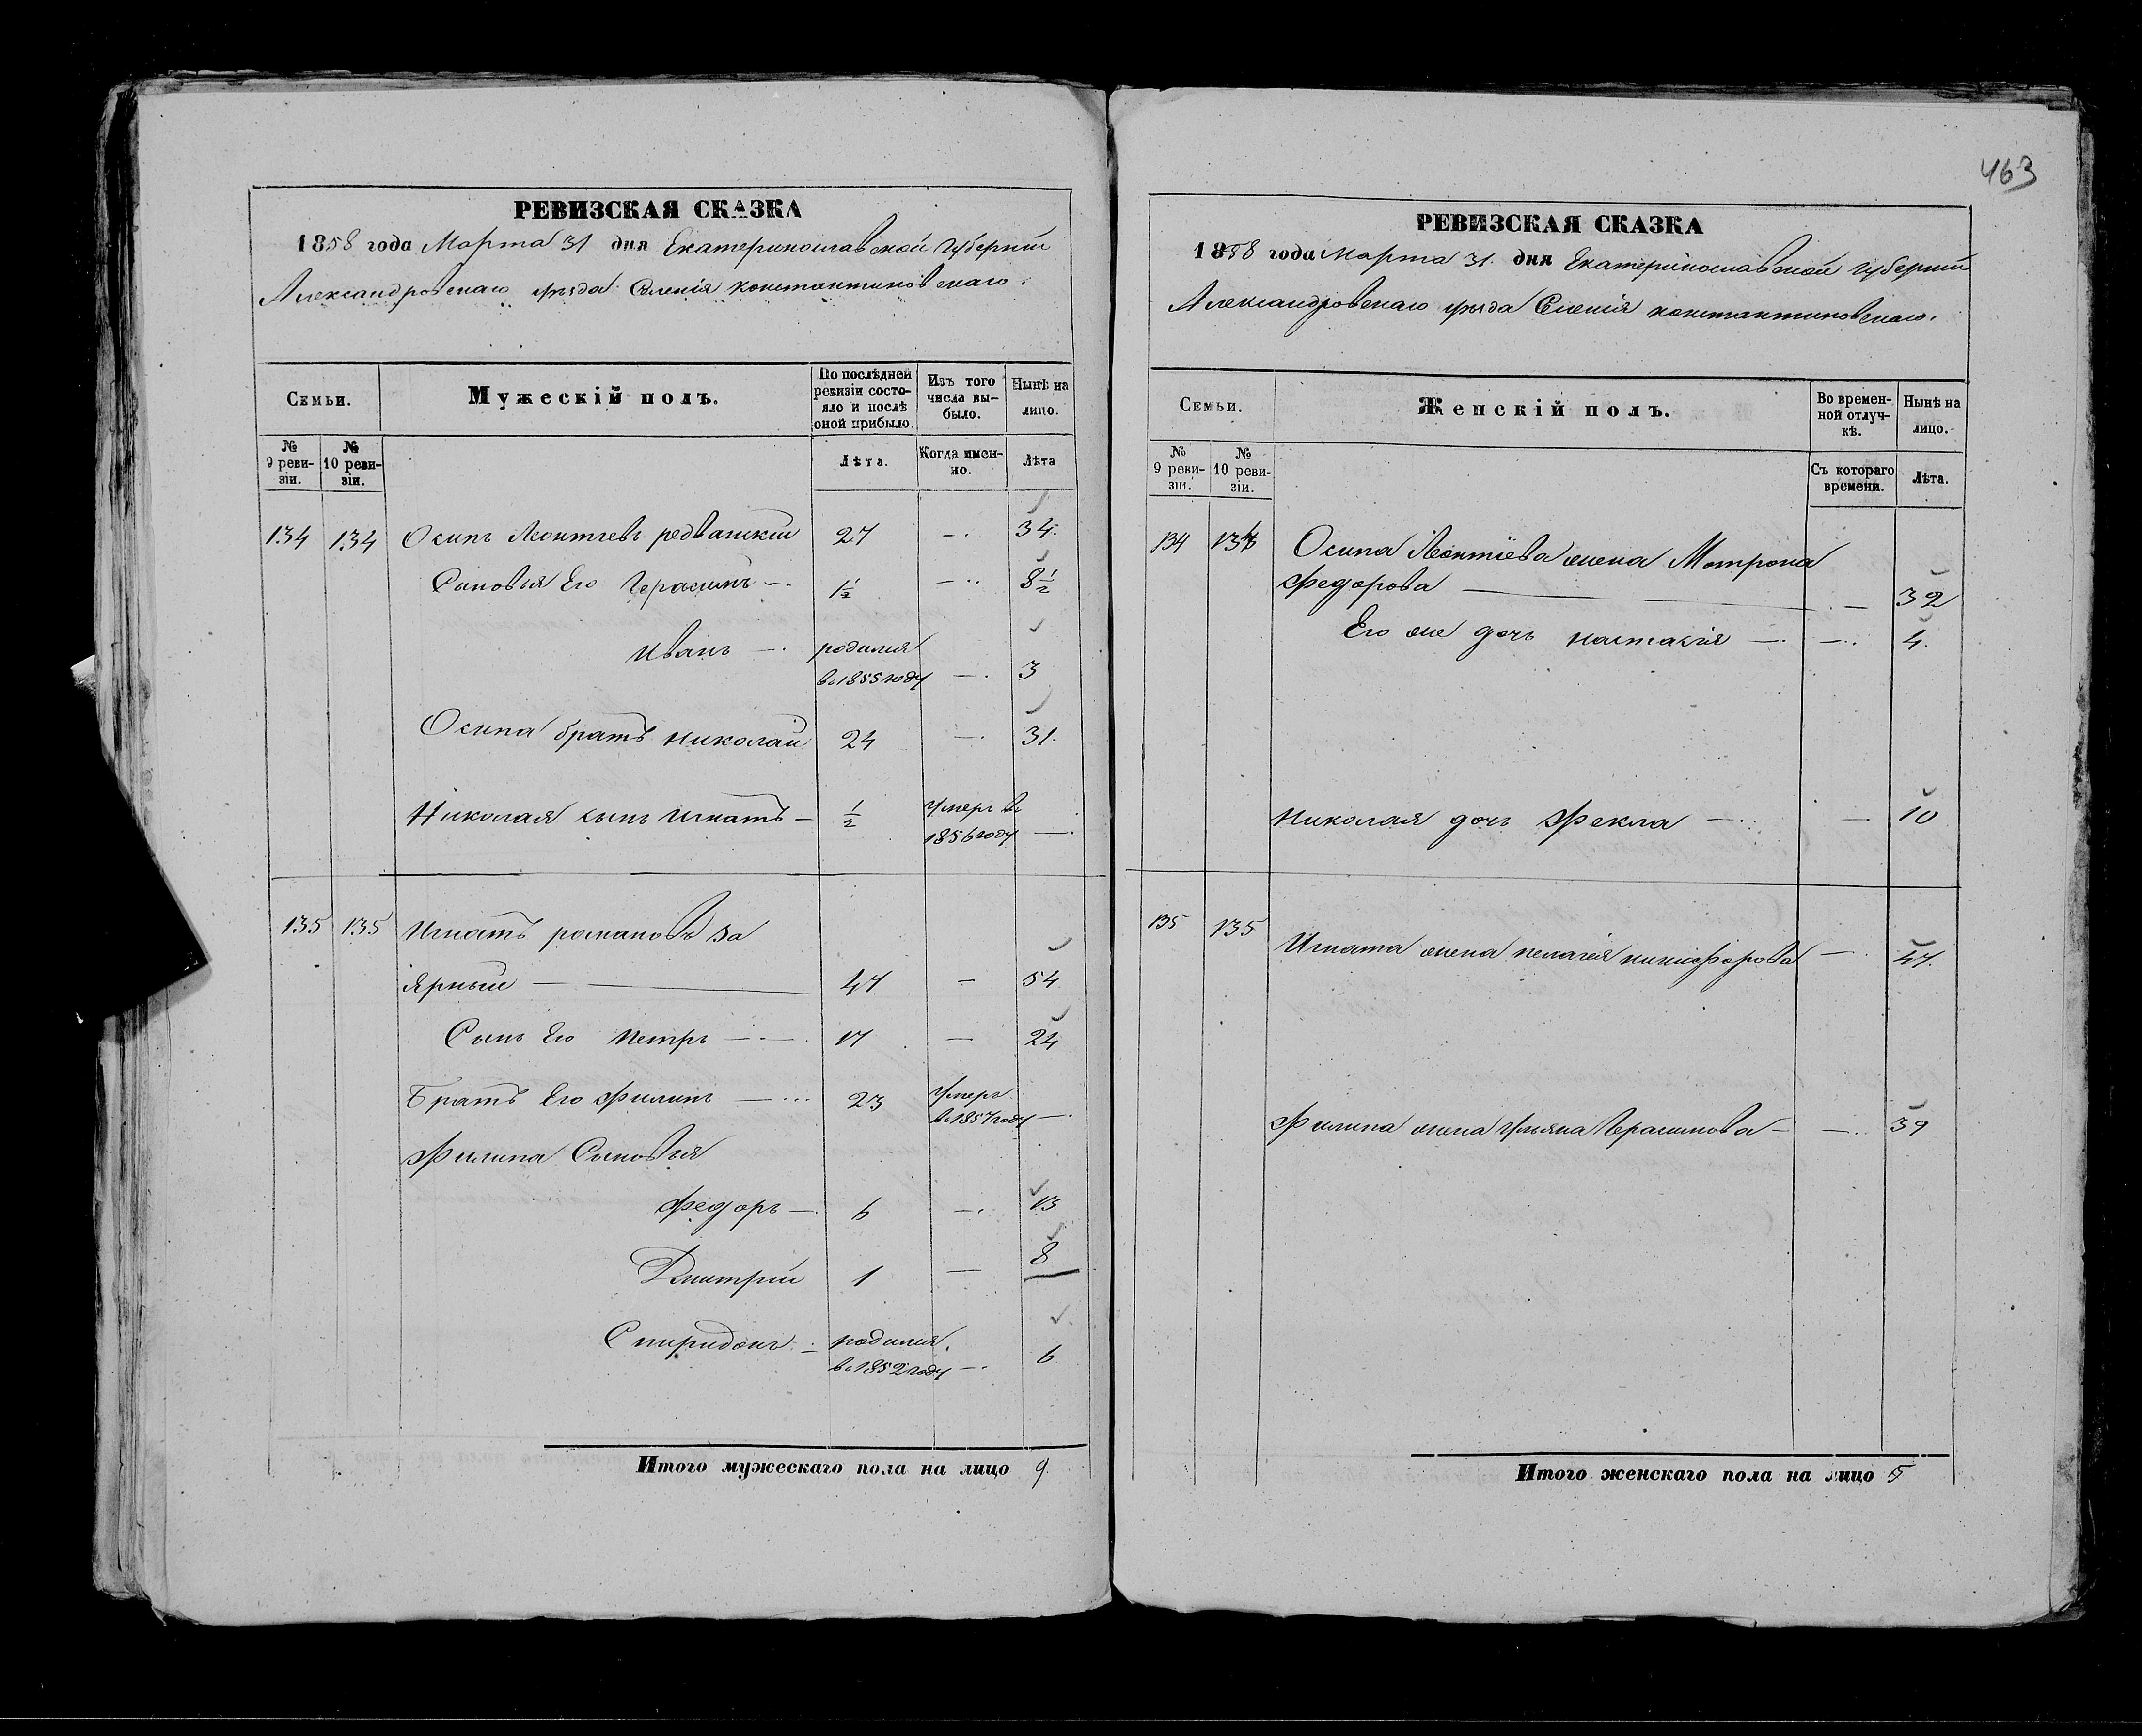 463
РЕВИЗСКАЯ СКАЗКА
1858 года Марта 31 дня Екатеринославской губерніи
Александровскаго уѣзда Селенія константиновскаго.
Семьи.
Мужескій полъ.
По послѣдней ревизіи состояло и послѣ оной прибыло.
Изъ того числа выбыло.
Нынѣ на лицо.
№ 9 ревизіи.
№ 10 ревизіи.
Лѣта.
Когда имен-но.
Лѣта
134 134 Осипъ Леонтіевъ 27 —. 34.
Сыновья Его Герасимъ —. 1½ —.. 8½
Иванъ —. родился
в 1855 году —. 3
Осипа братъ николай 24 —. 31.
Николая сынъ игнатъ — ½ умеръ в
1856 году —.
135 135 Игнатъ романовъ За
ярный — 47 — 54
Сынъ Его Петръ —.—. 17 — 24
Братъ Его Филипъ —... 23 умеръ
в 1857 году —.
Филипа Сыновья
Федоръ —. 6 —. 13
Дмитрій 1 — 8
Спиридонъ родился
в 1852 году —. 6
Итого мужескаго пола на лицо 9.
РЕВИЗСКАЯ СКАЗКА
1858 года марта 31. дня Екатеринославской губерніи
Александровскаго уѣзда Селенія константиновскаго.
Семьи.
Женскій полъ.
Во времен-ной отлуч-кѣ.
Нынѣ на лицо.
№ 9 ревизіи.
№ 10 ревизіи.
Съ котораго времени.
Лѣта.
134 134 Осипа Леонтіева жена Мотрона
Федорова — 32
Его же дочь настасія —. —. 4.
николая дочь Фекла — — 10
135 135 Игната жена пелагея никифорова —. 47.
Филипа жена ульяна Герасимова — —. 39
Итого женскаго пола на лицо 5